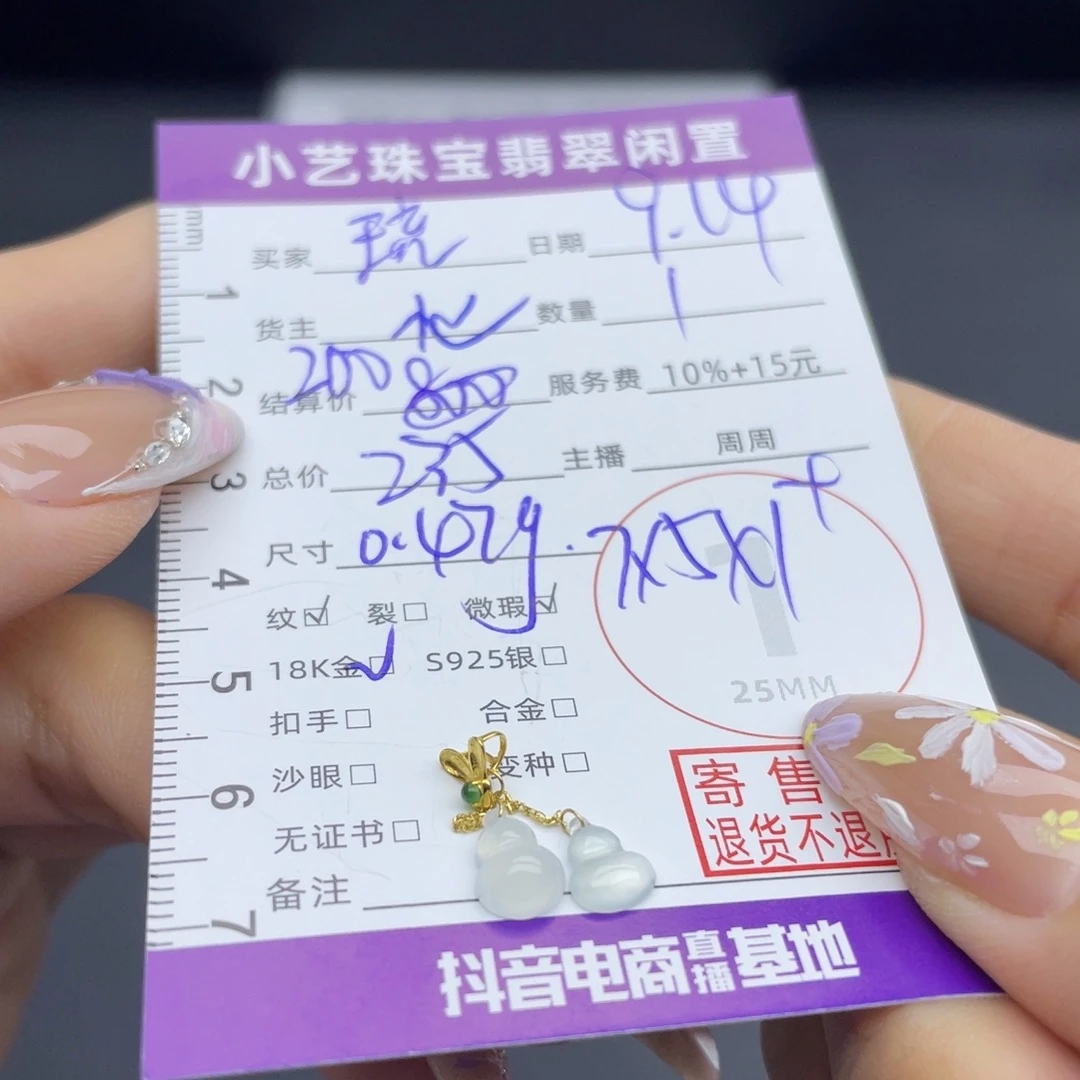 小艺珠宝翡翠闲置
买家 琉 日期 9.14
货主 数量 1
结算价 200 服务费 10%+15元
总价 235 主播 周周
尺寸 0.47g. 7X5X1+
纹☑ 裂□ 微瑕☑
18K金☑ S925银□
扣手□ 合金□
沙眼□ 变种□
无证书□
备注
1
25MM
寄售
退货不退
抖音电商直播基地
mm
1
2
3
4
5
6
7